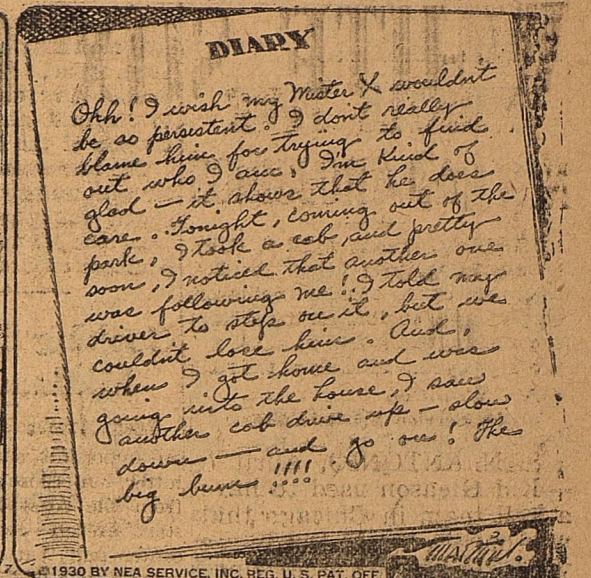 DIARY
Ohh! I wish my Mister X wouldn't
be so persistent. I don't really
blame him for trying to find
out who I am. I'm kind of
glad — it shows that he does
care. Tonight, coming out of the
park, I took a cab, and pretty
soon, I noticed that another one
was following me! I told my
driver to step on it, but we
couldn't lose him. And,
when I got home and was
going into the house, I saw
another cab drive up — slow
down — and go on! The
big bum!!!!
©1930 BY NEA SERVICE, INC. REG. U. S. PAT. OFF.